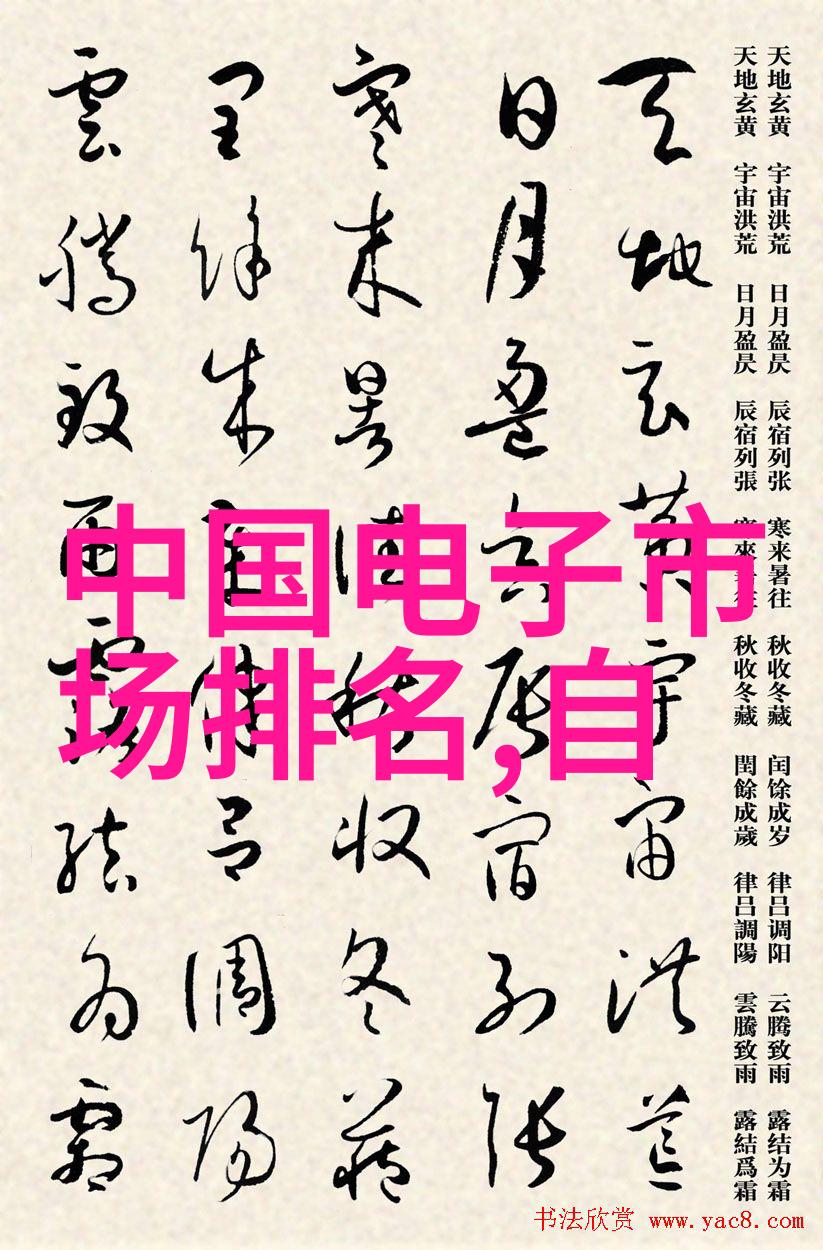 天地玄黄 宇宙洪荒 日月盈昃 辰宿列张 寒来暑往 秋收冬藏 闰馀成岁 律吕调阳 云腾致雨 露结为霜
天地玄黄 宇宙洪荒 日月盈昃 辰宿列張 寒來暑往 秋收冬藏 閏餘成歲 律呂調陽 雲騰致雨 露結爲霜
天地玄黄宇宙洪荒
日月盈昃辰宿列張
寒来暑往秋收冬藏
閏餘成歲律呂調陽
雲騰致雨露結為霜
中国电子市
场排名,自
书法欣赏 www.yac8.com